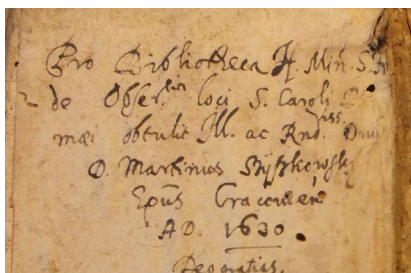 Pro Bibliotheca ff. Min. S. Fr
de Obser.tia loci S. Caroli
mæi obtulit Ill. ac Rnd.iss. Dnus
D. Martinus Szyszkowski
Epūs Cracovień
AD. 1620.
Deogratias.